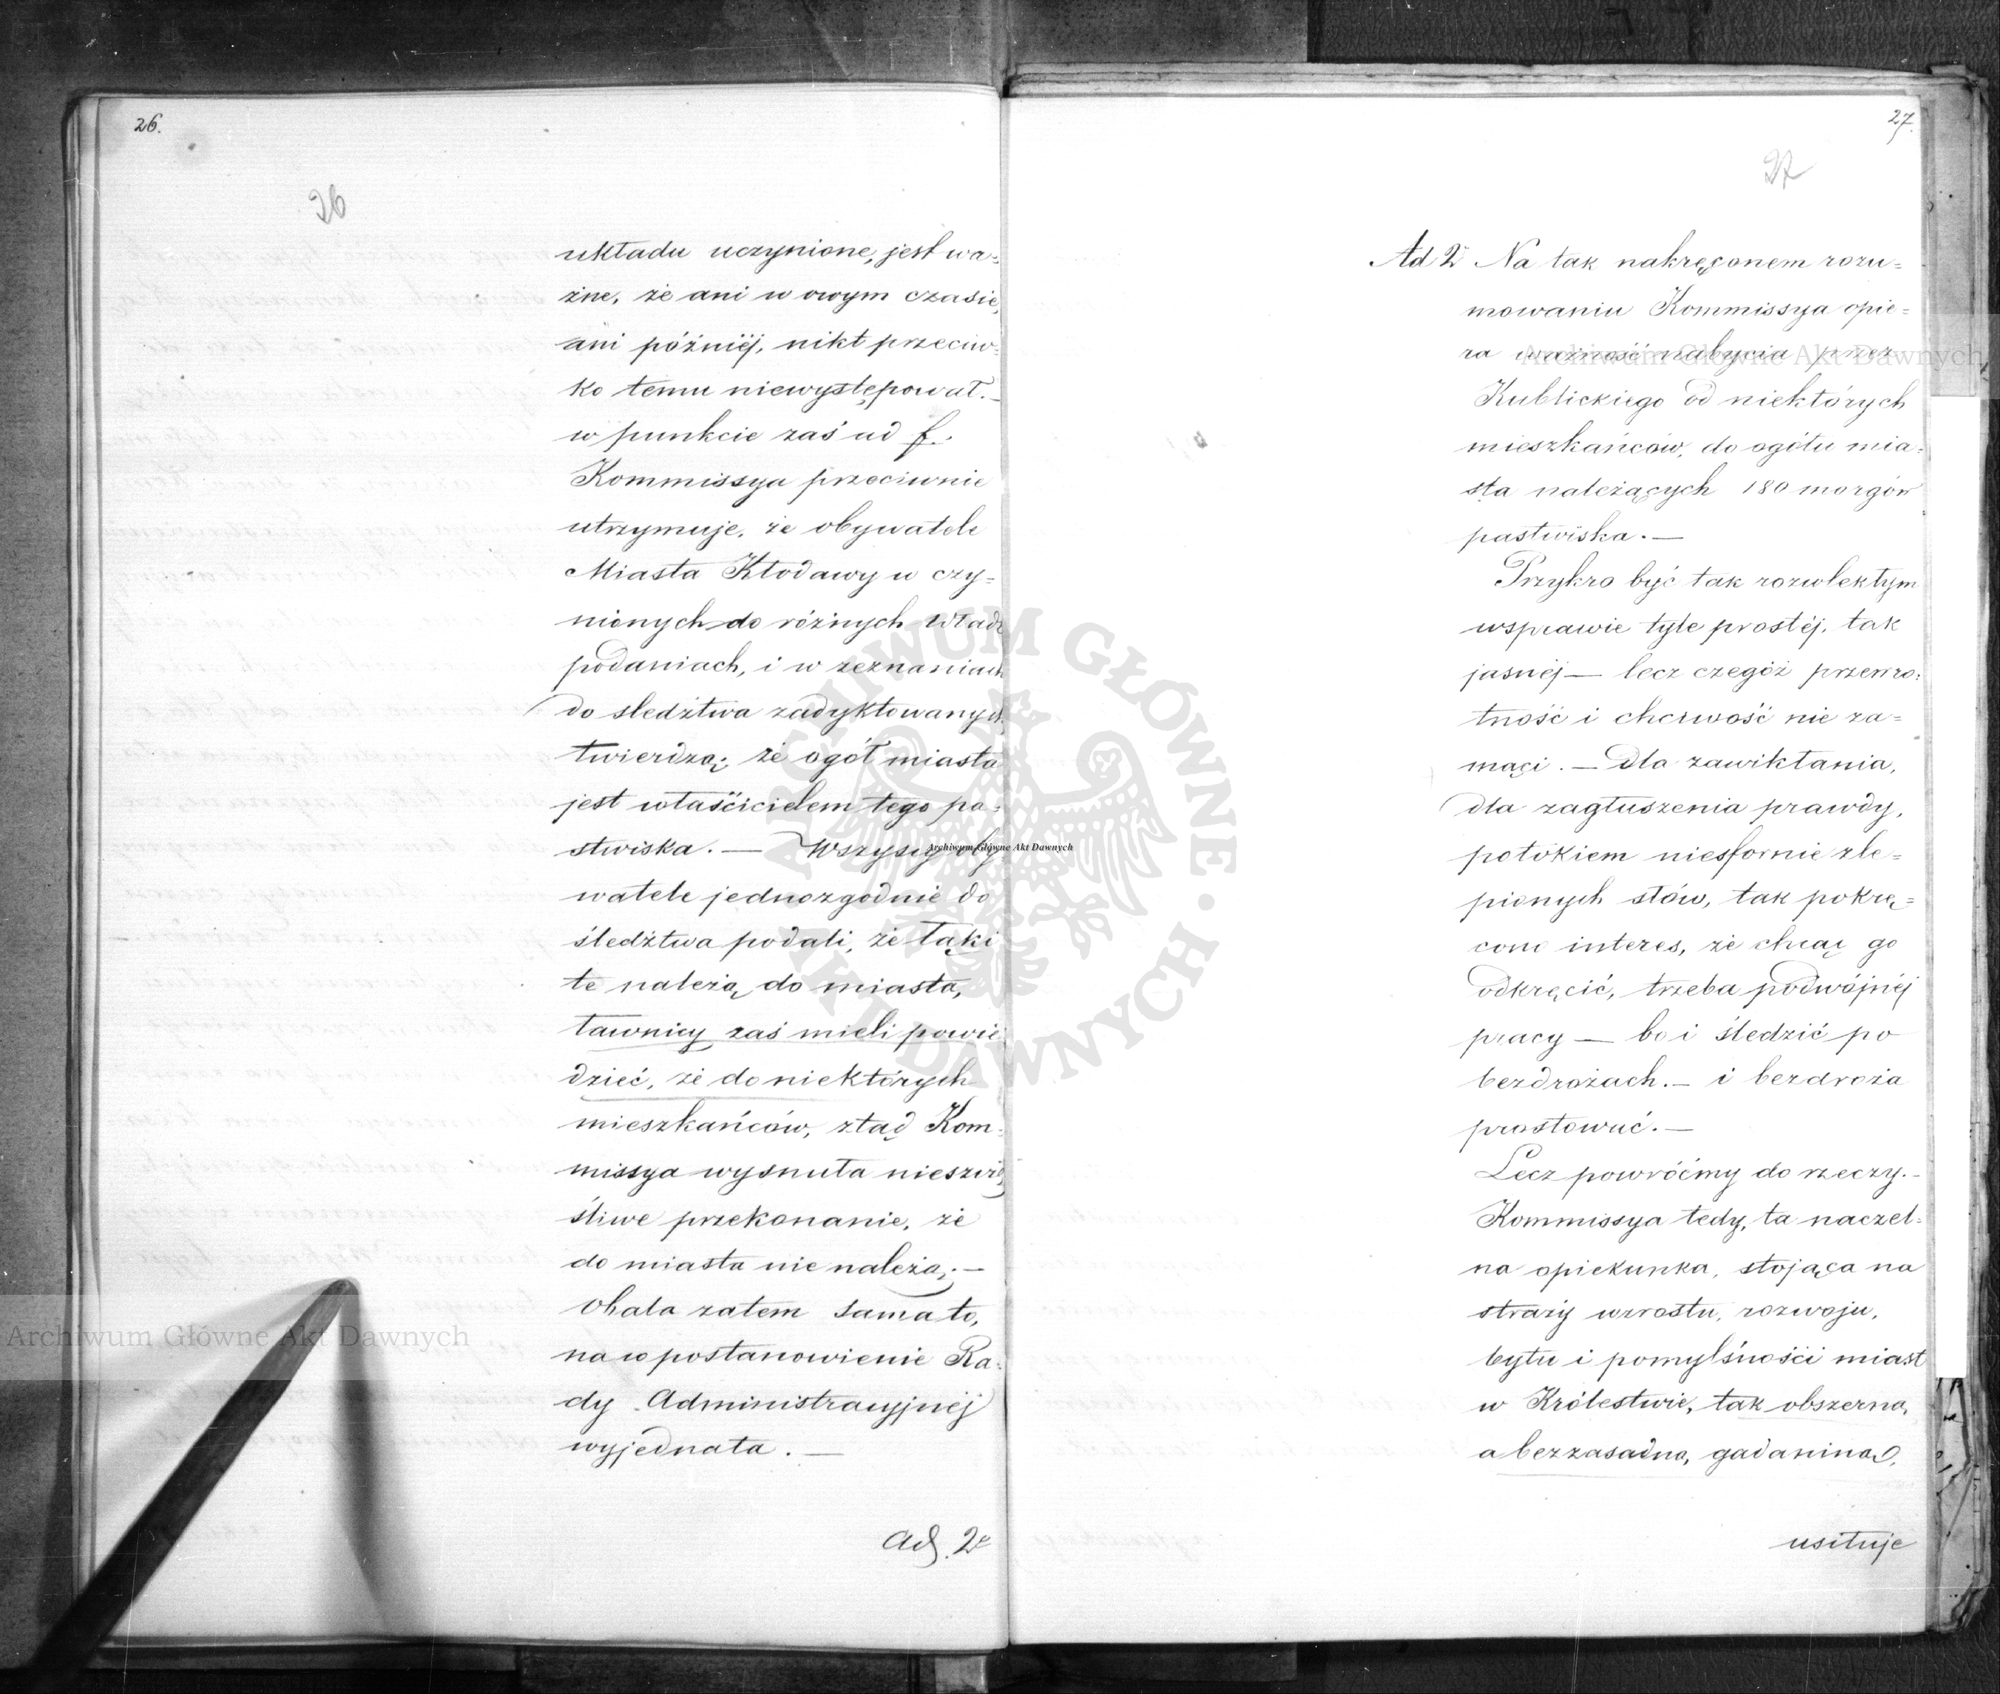 26.
26
układu uczynione, jest wa=
żne, że ani w owym czasie,
ani późniéj, nikt przeciw=
ko temu niewystępował. —
w punkcie zaś ad f.
Kommissya przeciwnie
utrzymuje, że obywatele
Miasta Kłodawy w czy=
nionych do różnych Władz
podaniach, i w zeznaniach
do sledztwa zadyktowanych
twierdzą; że ogół miasta
jest właścicielem tego pa=
stwiska. — Wszyscy oby
watele jednozgodnie do
śledztwa podali, że łąki
te należą do miasta,
ławnicy zaś mieli powie
dzieć, że do niektórych
mieszkańców, ztąd Kom=
missya wysnuła nieszczę
śliwe przekonanie, że
do miasta nie należą; —
Obala zatem sama to,
na co postanowienie Ra=
dy Administracyjnéj
wyjednała. —
Ad. 2o
27.
27
Ad 2o Na tak nakręconem rozu=
mowaniu Kommissya opie=
ra ważność nabycia przez
Kublickiego od niektórych
mieszkańców, do ogółu mia=
sta należących 180 morgów
pastwiska. —
Przykro być tak rozwlekłym
wsprawie tyle prostéj, tak
jasnéj — lecz czegóż przewro=
tność i chciwość nie za=
mąci. — Dla zawikłania,
dla zagłuszenia prawdy,
potokiem niesfornie zle=
pionych słów, tak pokrę=
cono interes, że chcąc go
odkręcić, trzeba podwójnéj
pracy — bo i śledzić po
bezdrożach. — i bezdroża
prostować. —
Lecz powróćmy do rzeczy. —
Kommissya tedy, ta naczel=
na opiekunka, stojąca na
straży wzrostu, rozwoju,
bytu i pomyślności miast
w Królestwie, tak obszerną,
a bezzasadną, gadaniną,
usiłuje
Archiwum Główne Akt Dawnych
Archiwum Główne Akt Dawnych
Archiwum Główne Akt Dawnych
ARCHIWUM GŁÓWNE • AKT DAWNYCH